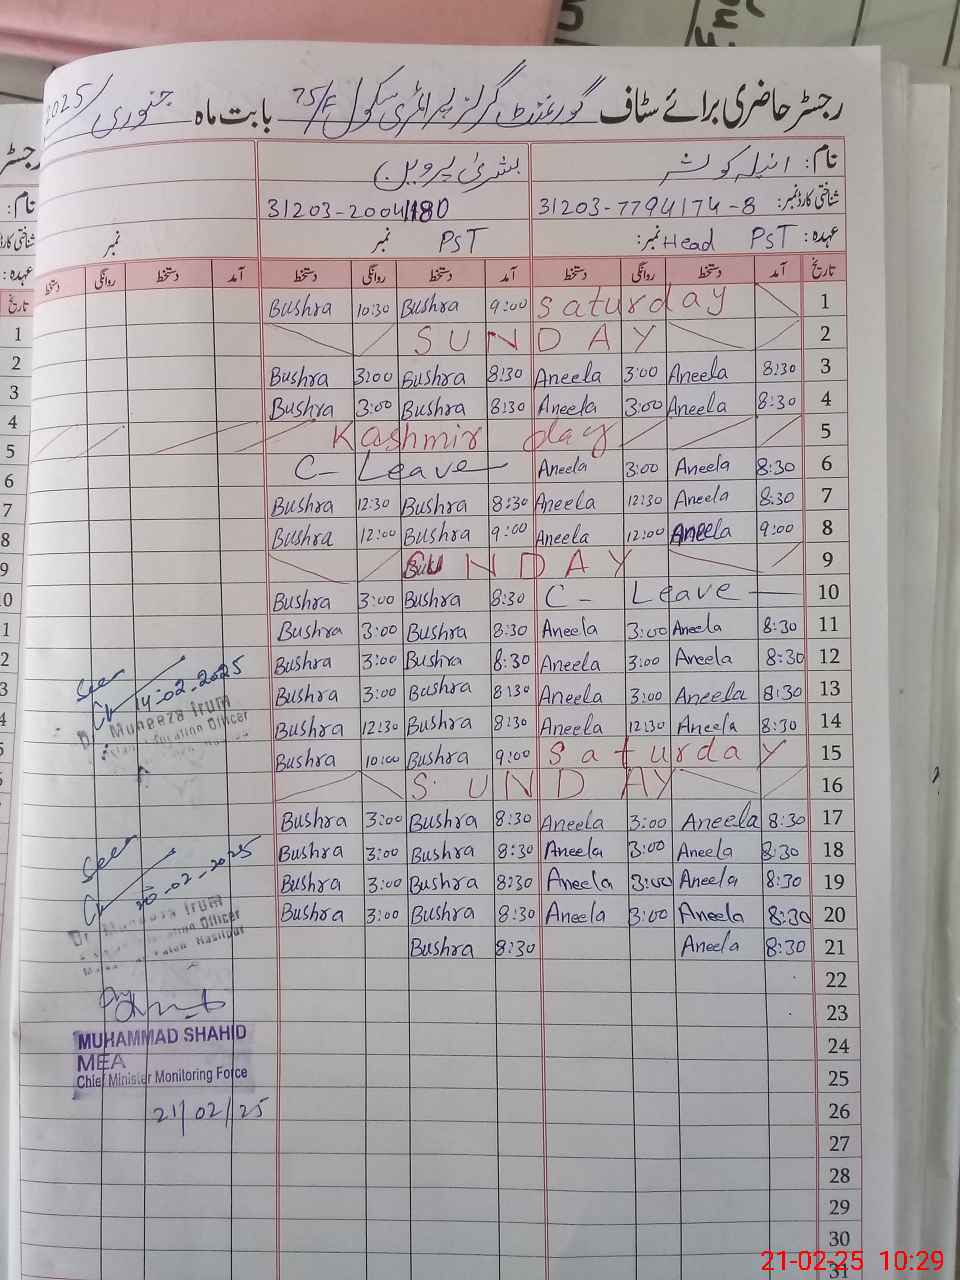 رجسٹر حاضری برائے سٹاف گورنمنٹ گرلز پرائمری سکول 75/F بابت ماہ جنوری 2025
نام: انیلہ کوثر بشریٰ پروین
شناختی کارڈ نمبر: 31203-7794174-8 31203-2004
عہدہ: PST Head نمبر: PST نمبر نمبر
تاریخ آمد دستخط روانگی دستخط آمد دستخط روانگی دستخط آمد دستخط روانگی دستخط
Bushra 10:30 Bushra 9:00 Saturday 1
SUNDAY 2
Bushra 3:00 Bushra 8:30 Aneela 3:00 Aneela 8:30 3
Bushra 3:00 Bushra 8:30 Aneela 3:00 Aneela 8:30 4
Kashmir day 5
C- Leave Aneela 3:00 Aneela 8:30 6
Bushra 12:30 Bushra 8:30 Aneela 12:30 Aneela 8:30 7
Bushra 12:00 Bushra 9:00 Aneela 12:00 Aneela 9:00 8
SUNDAY 9
Bushra 3:00 Bushra 8:30 C- Leave 10
Bushra 3:00 Bushra 8:30 Aneela 3:00 Aneela 8:30 11
Bushra 3:00 Bushra 8:30 Aneela 3:00 Aneela 8:30 12
Bushra 3:00 Bushra 8:30 Aneela 3:00 Aneela 8:30 13
Bushra 12:30 Bushra 8:30 Aneela 12:30 Aneela 8:30 14
Bushra 10:00 Bushra 9:00 Saturday 15
SUNDAY 16
Bushra 3:00 Bushra 8:30 Aneela 3:00 Aneela 8:30 17
Bushra 3:00 Bushra 8:30 Aneela 3:00 Aneela 8:30 18
Bushra 3:00 Bushra 8:30 Aneela 3:00 Aneela 8:30 19
Bushra 3:00 Bushra 8:30 Aneela 3:00 Aneela 8:30 20
Bushra 8:30 Aneela 8:30 21
22
23
24
25
26
27
28
29
30
31
Seen
14-02-2025
Dr Muneeza Irum
Education Officer
Seen
20-02-2025
Irum
Education Officer
Hasilpur
MUHAMMAD SHAHID
MEA
Chief Minister Monitoring Force
21/02/25
رجسٹر
نام:
شناختی کارڈ
عہدہ:
تاریخ
1
2
3
4
5
6
7
8
9
21-02-25 10:29